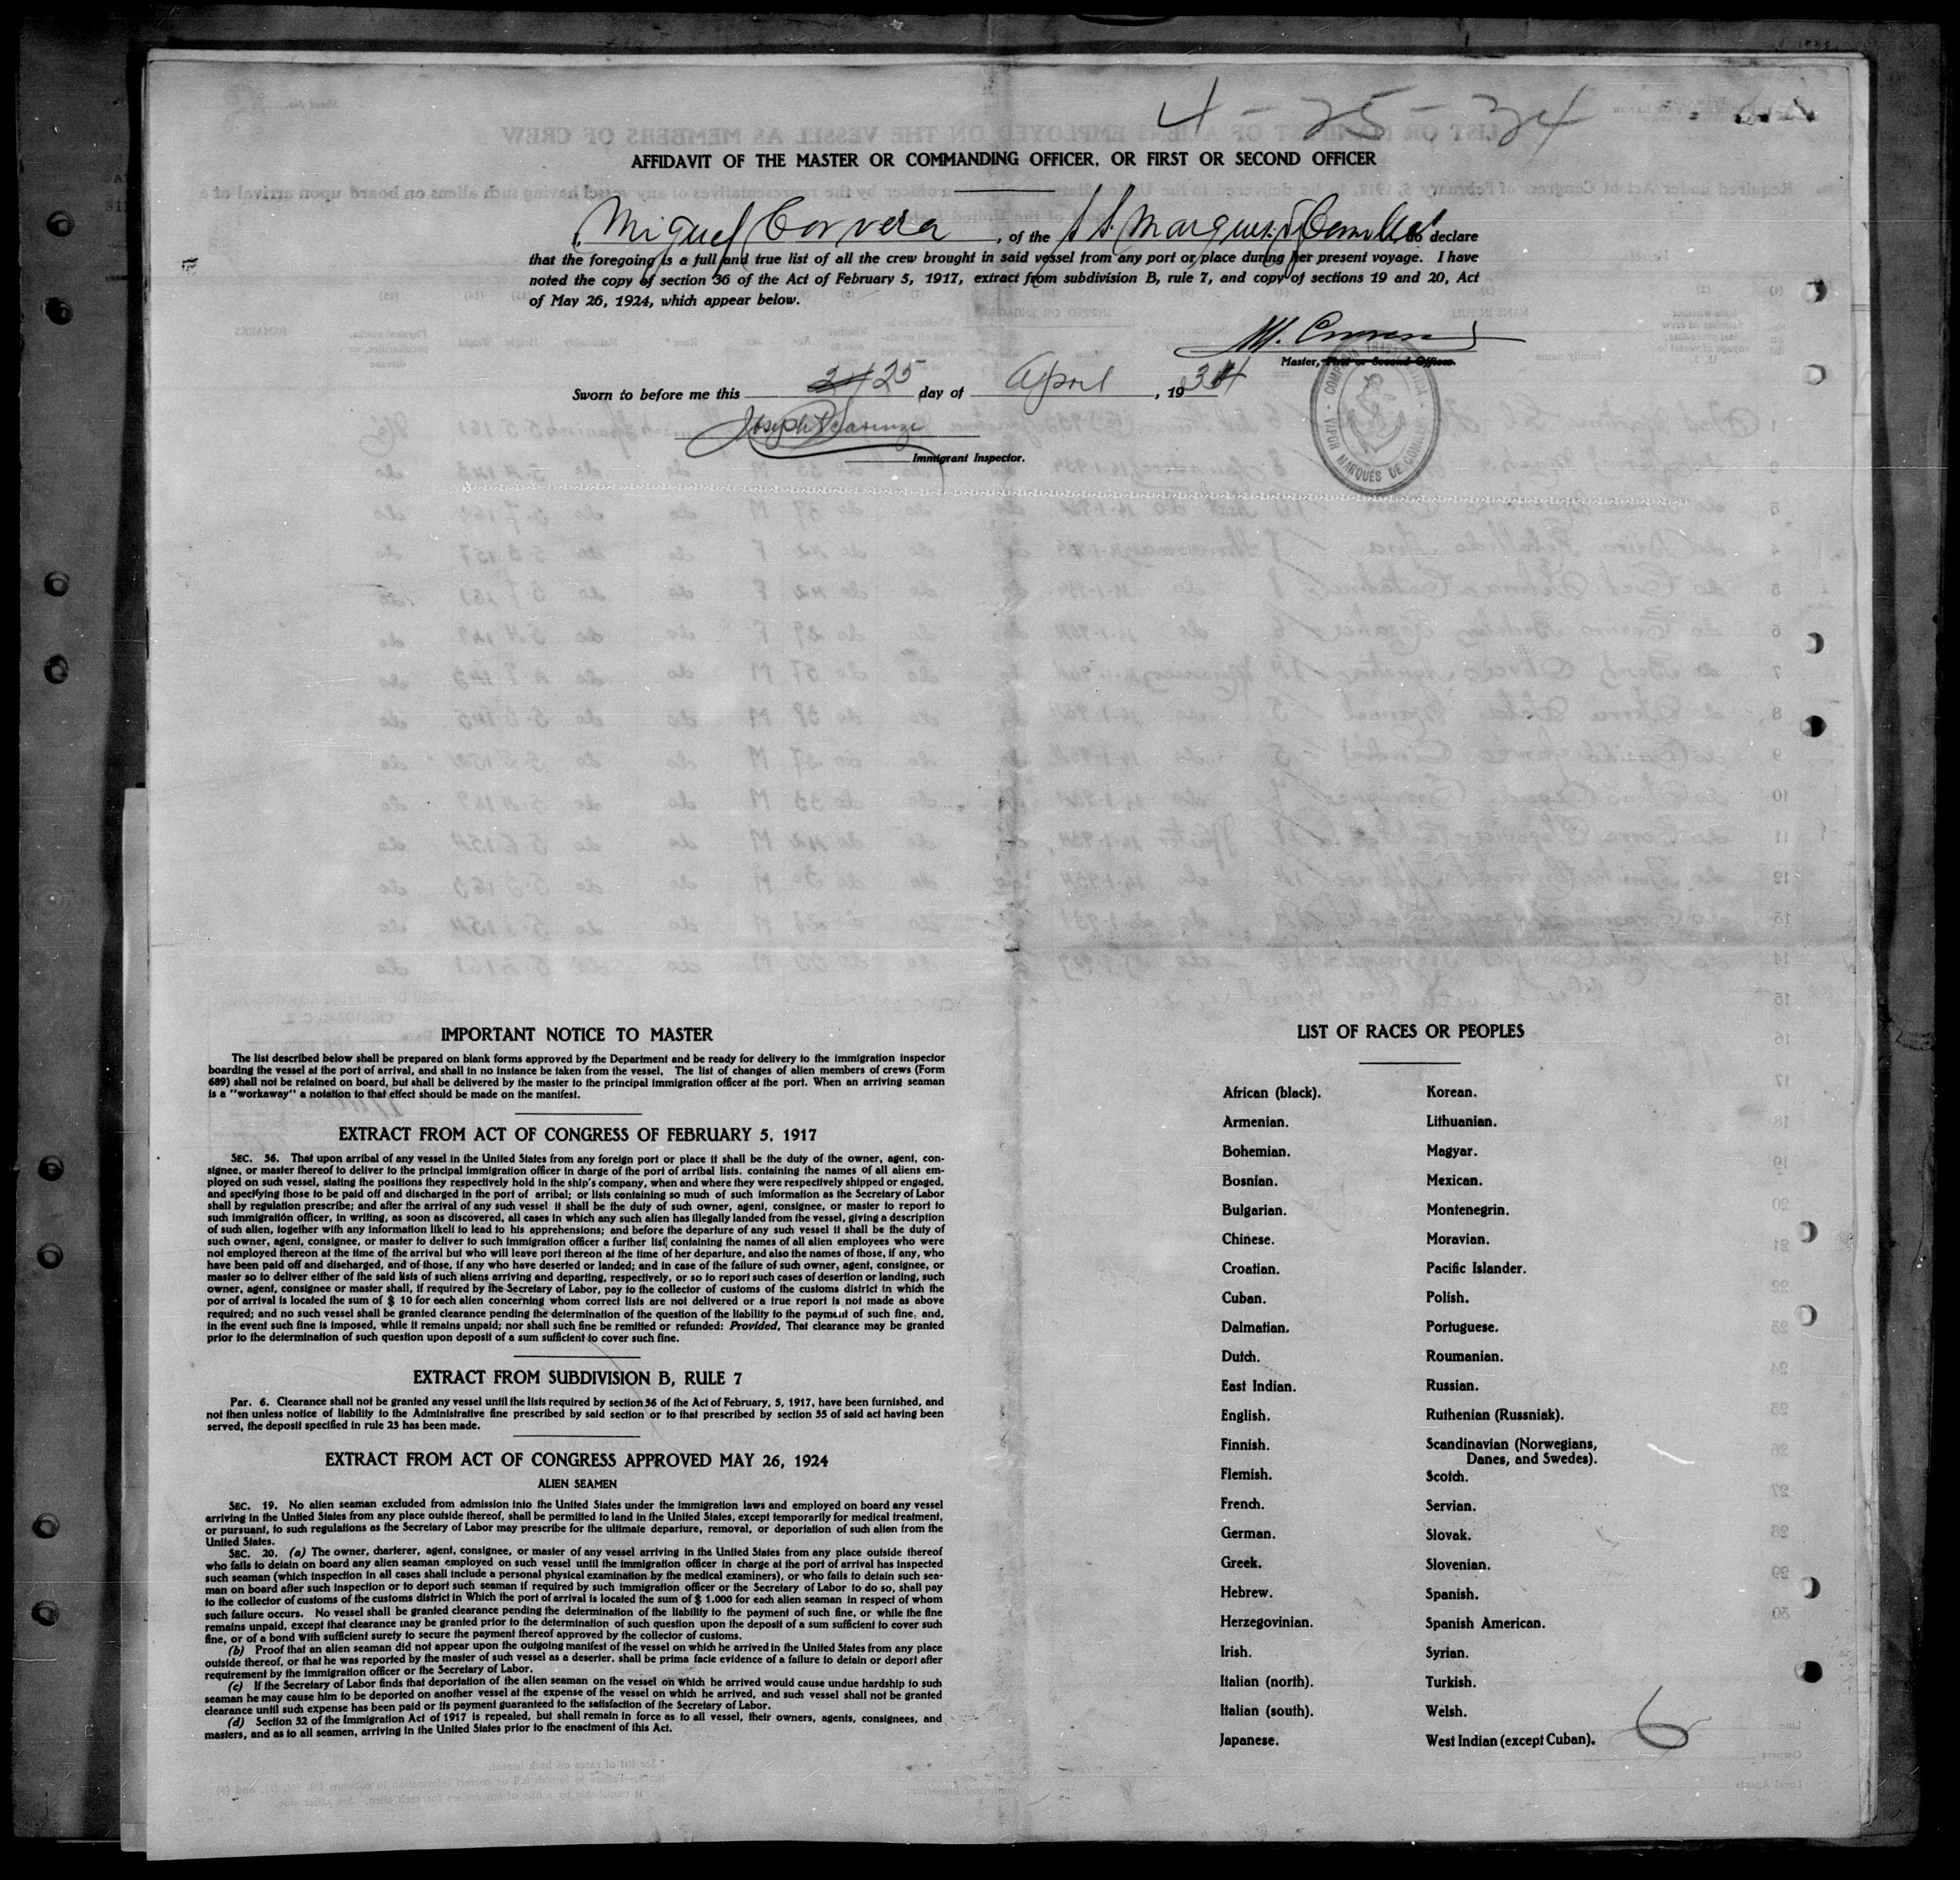 4-25-34
AFFIDAVIT OF THE MASTER OR COMMANDING OFFICER, OR FIRST OR SECOND OFFICER
I, Miguel Corvera, of the S.S. Marques d Comillas do declare
that the foregoing is a full and true list of all the crew brought in said vessel from any port or place during her present voyage. I have
noted the copy of section 36 of the Act of February 5, 1917, extract from subdivision B, rule 7, and copy of sections 19 and 20, Act
of May 26, 1924, which appear below.
Master, First or Second Officer.
Sworn to before me this 24 25 day of April, 1934
Immigrant Inspector.
VAPOR MARQUES DE COMILLAS
IMPORTANT NOTICE TO MASTER
The list described below shall be prepared on blank forms approved by the Department and be ready for delivery to the immigration inspector
boarding the vessel at the port of arrival, and shall in no instance be taken from the vessel. The list of changes of alien members of crews (Form
689) shall not be retained on board, but shall be delivered by the master to the principal immigration officer at the port. When an arriving seaman
is a "workaway" a notation to that effect should be made on the manifest.
EXTRACT FROM ACT OF CONGRESS OF FEBRUARY 5, 1917
SEC. 36. That upon arribal of any vessel in the United States from any foreign port or place it shall be the duty of the owner, agent, con-
signee, or master thereof to deliver to the principal immigration officer in charge of the port of arribal lists. containing the names of all aliens em-
ployed on such vessel, stating the positions they respectively hold in the ship's company, when and where they were respectively shipped or engaged,
and specifying those to be paid off and discharged in the port of arribal; or lists containing so much of such imformation as the Secretary of Labor
shall by regulation prescribe; and after the arrival of any such vessel it shall be the duty of such owner, agent, consignee, or master to report to
such immigration officer, in writing, as soon as discovered, all cases in which any such alien has illegally landed from the vessel, giving a description
of such alien, together with any information likeli to lead to his apprehensions; and before the departure of any such vessel it shall be the duty of
such owner, agent, consignee, or master to deliver to such immigration officer a further list containing the names of all alien employees who were
not employed thereon at the time of the arrival but who will leave port thereon at the time of her departure, and also the names of those, if any, who
have been paid off and discharged, and of those, if any who have deserted or landed; and in case of the failure of such owner, agent, consignee, or
master so to deliver either of the said lists of such aliens arriving and departing, respectively, or so to report such cases of desertion or landing, such
owner, agent, consignee or master shall, if required by the Secretary of Labor, pay to the collector of customs of the customs district in which the
por of arrival is located the sum of $ 10 for each alien concerning whom correct lists are not delivered or a true report is not made as above
required; and no such vessel shall be granted clearance pending the determination of the question of the liability to the payment of such fine, and,
in the event such fine is imposed, while it remains unpaid; nor shall such fine be remitted or refunded: Provided, That clearance may be granted
prior to the determination of such question upon deposit of a sum sufficient to cover such fine.
EXTRACT FROM SUBDIVISION B, RULE 7
Par. 6. Clearance shall not be granted any vessel until the lists required by section 36 of the Act of February, 5, 1917, have been furnished, and
not then unless notice of liability to the Administrative fine prescribed by said section or to that prescribed by section 35 of said act having been
served, the deposit specified in rule 23 has been made.
EXTRACT FROM ACT OF CONGRESS APPROVED MAY 26, 1924
ALIEN SEAMEN
SEC. 19. No alien seaman excluded from admission into the United States under the immigration laws and employed on board any vessel
arriving in the United States from any place outside thereof, shall be permitted to land in the United States, except temporarily for medical treatment,
or pursuant, to such regulations as the Secretary of Labor may prescribe for the ultimate departure, removal, or deportation of such alien from the
United States.
SEC. 20. (a) The owner, charterer, agent, consignee, or master of any vessel arriving in the United States from any place outside thereof
who fails to detain on board any alien seaman employed on such vessel until the immigration officer in charge at the port of arrival has inspected
such seaman (which inspection in all cases shall include a personal physical examination by the medical examiners), or who fails to detain such sea-
man on board after such inspection or to deport such seaman if required by such immigration officer or the Secretary of Labor to do so, shall pay
to the collector of customs of the customs district in Which the port of arrival is located the sum of $ 1.000 for each alien seaman in respect of whom
such failure occurs. No vessel shall be granted clearance pending the determination of the liability to the payment of such fine, or while the fine
remains unpaid, except that clearance may be granted prior to the determination of such question upon the deposit of a sum sufficient to cover such
fine, or of a bond with sufficient surety to secure the payment thereof approved by the collector of customs.
(b) Proof that an alien seaman did not appear upon the outgoing manifest of the vessel on which he arrived in the United States from any place
outside thereof, or that he was reported by the master of such vessel as a deserter. shall be prima facie evidence of a failure to detain or deport after
requirement by the immigration officer or the Secretary of Labor.
(c) If the Secretary of Labor finds that deportation of the alien seaman on the vessel on which he arrived would cause undue hardship to such
seaman he may cause him to be deported on another vessel at the expense of the vessel on which he arrived, and such vessel shall not be granted
clearance until such expense has been paid or its payment guaranteed to the satisfaction of the Secretary of Labor.
(d) Section 32 of the Immigration Act of 1917 is repealed, but shall remain in force as to all vessel, their owners, agents, consignees, and
masters, and as to all seamen, arriving in the United States prior to the enactment of this Act.
LIST OF RACES OR PEOPLES
African (black).
Armenian.
Bohemian.
Bosnian.
Bulgarian.
Chinese.
Croatian.
Cuban.
Dalmatian.
Dutch.
East Indian.
English.
Finnish.
Flemish.
French.
German.
Greek.
Hebrew.
Herzegovinian.
Irish.
Italian (north).
Italian (south).
Japanese.
Korean.
Lithuanian.
Magyar.
Mexican.
Montenegrin.
Moravian.
Pacific Islander.
Polish.
Portuguese.
Roumanian.
Russian.
Ruthenian (Russniak).
Scandinavian (Norwegians,
Danes, and Swedes).
Scotch.
Servian.
Slovak.
Slovenian.
Spanish.
Spanish American.
Syrian.
Turkish.
Welsh.
West Indian (except Cuban).
6